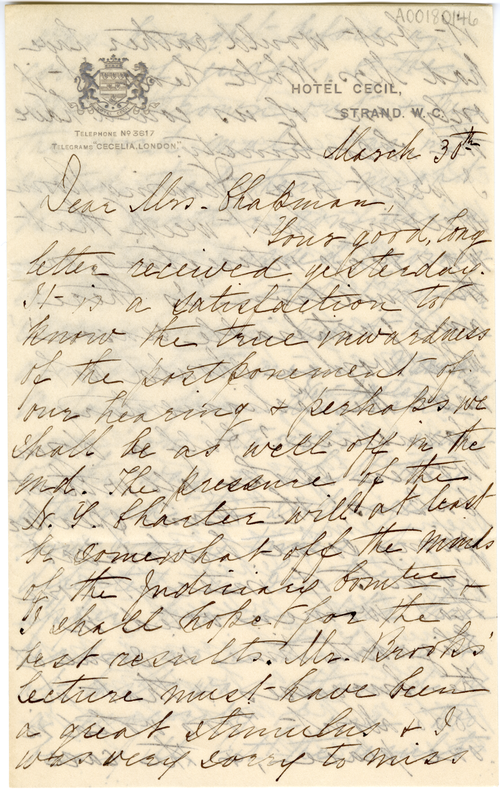 A00180146
HOTEL CECIL,
STRAND. W. C.
TELEPHONE Nº 3617
TELEGRAMS "CECELIA, LONDON"
March 30th
Dear Mrs. Chapman,
Your good, long
letter received yesterday.
It is a satisfaction to
know the true inwardness
of the postponement of
our hearing & perhaps we
shall be as well off in the
end. The pressure of the
N. Y. Charter will at least
be somewhat off the minds
of the Judiciary Comtee -
I shall hope for the
best results. Mr. Brooks'
lecture must have been
a great stimulus & I
was very sorry to miss